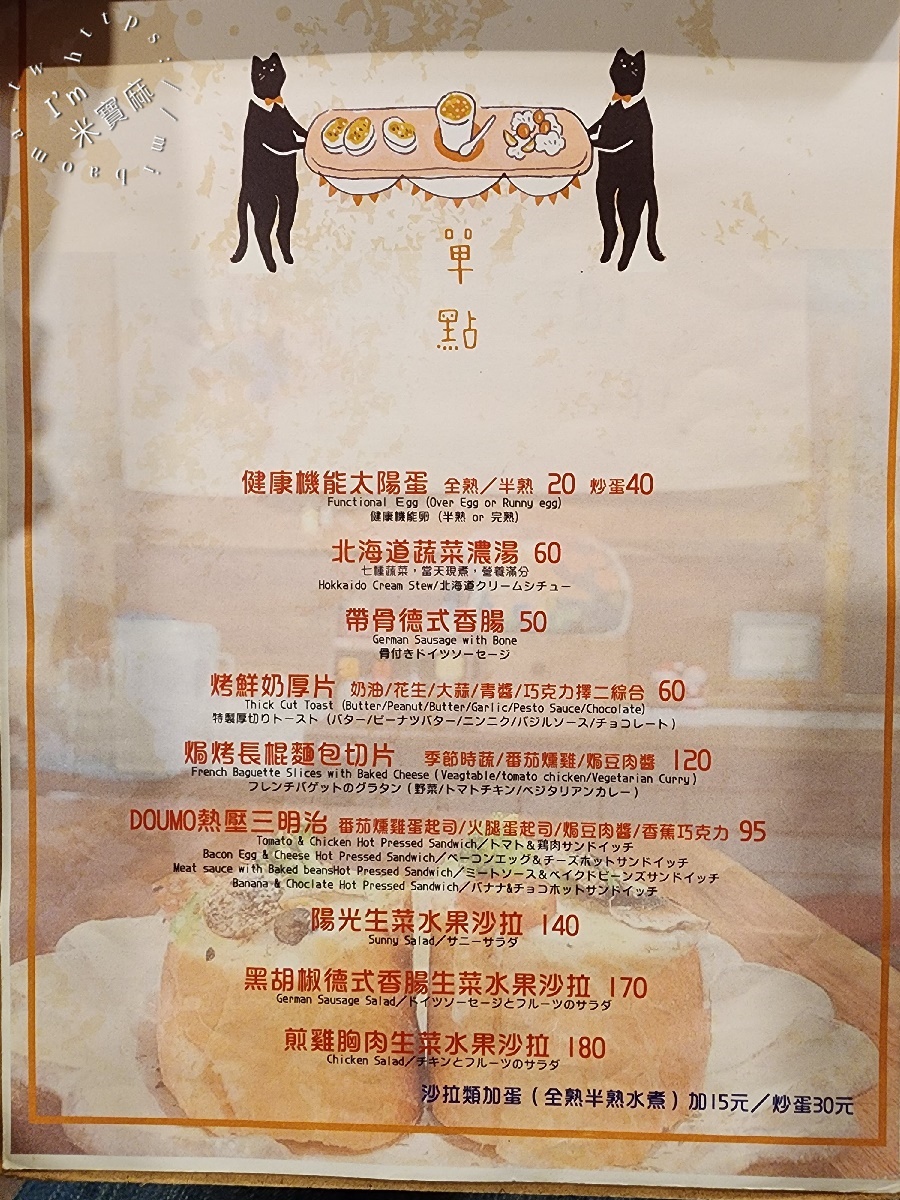 https:
I'm
米寶麻
單
點
健康機能太陽蛋 全熟／半熟 20 炒蛋40
Functional Egg (Over Egg or Runny egg)
健康機能卵 (半熟 or 完熟)
北海道蔬菜濃湯 60
七種蔬菜，當天現煮，營養滿分
Hokkaido Cream Stew/北海道クリームシチュー
帶骨德式香腸 50
German Sausage with Bone
骨付きドイツソーセージ
烤鮮奶厚片 奶油/花生/大蒜/青醬/巧克力擇二綜合 60
Thick Cut Toast (Butter/Peanut/Butter/Garlic/Pesto Sauce/Chocolate)
特製厚切りトースト (バター/ピーナツバター/ニンニク/バジルソース/チョコレート)
焗烤長棍麵包切片 季節時蔬/番茄燻雞/焗豆肉醬 120
French Baguette Slices with Baked Cheese (Veagtable/tomato chicken/Vegetarian Curry)
フレンチバゲットのグラタン (野菜/トマトチキン/ベジタリアンカレー)
DOUMO熱壓三明治 番茄燻雞蛋起司/火腿蛋起司/焗豆肉醬/香蕉巧克力 95
Tomato & Chicken Hot Pressed Sandwich／トマト＆鶏肉サンドイッチ
Bacon Egg & Cheese Hot Pressed Sandwich／ベーコンエッグ＆チーズホットサンドイッチ
Meat sauce with Baked beansHot Pressed Sandwich／ミートソース＆ベイクドビーンズサンドイッチ
Banana & Choclate Hot Pressed Sandwich／バナナ&チョコホットサンドイッチ
陽光生菜水果沙拉 140
Sunny Salad／サニーサラダ
黑胡椒德式香腸生菜水果沙拉 170
German Sausage Salad／ドイツソーセージとフルーツのサラダ
煎雞胸肉生菜水果沙拉 180
Chicken Salad／チキンとフルーツのサラダ
沙拉類加蛋 (全熟半熟水煮) 加15元／炒蛋30元